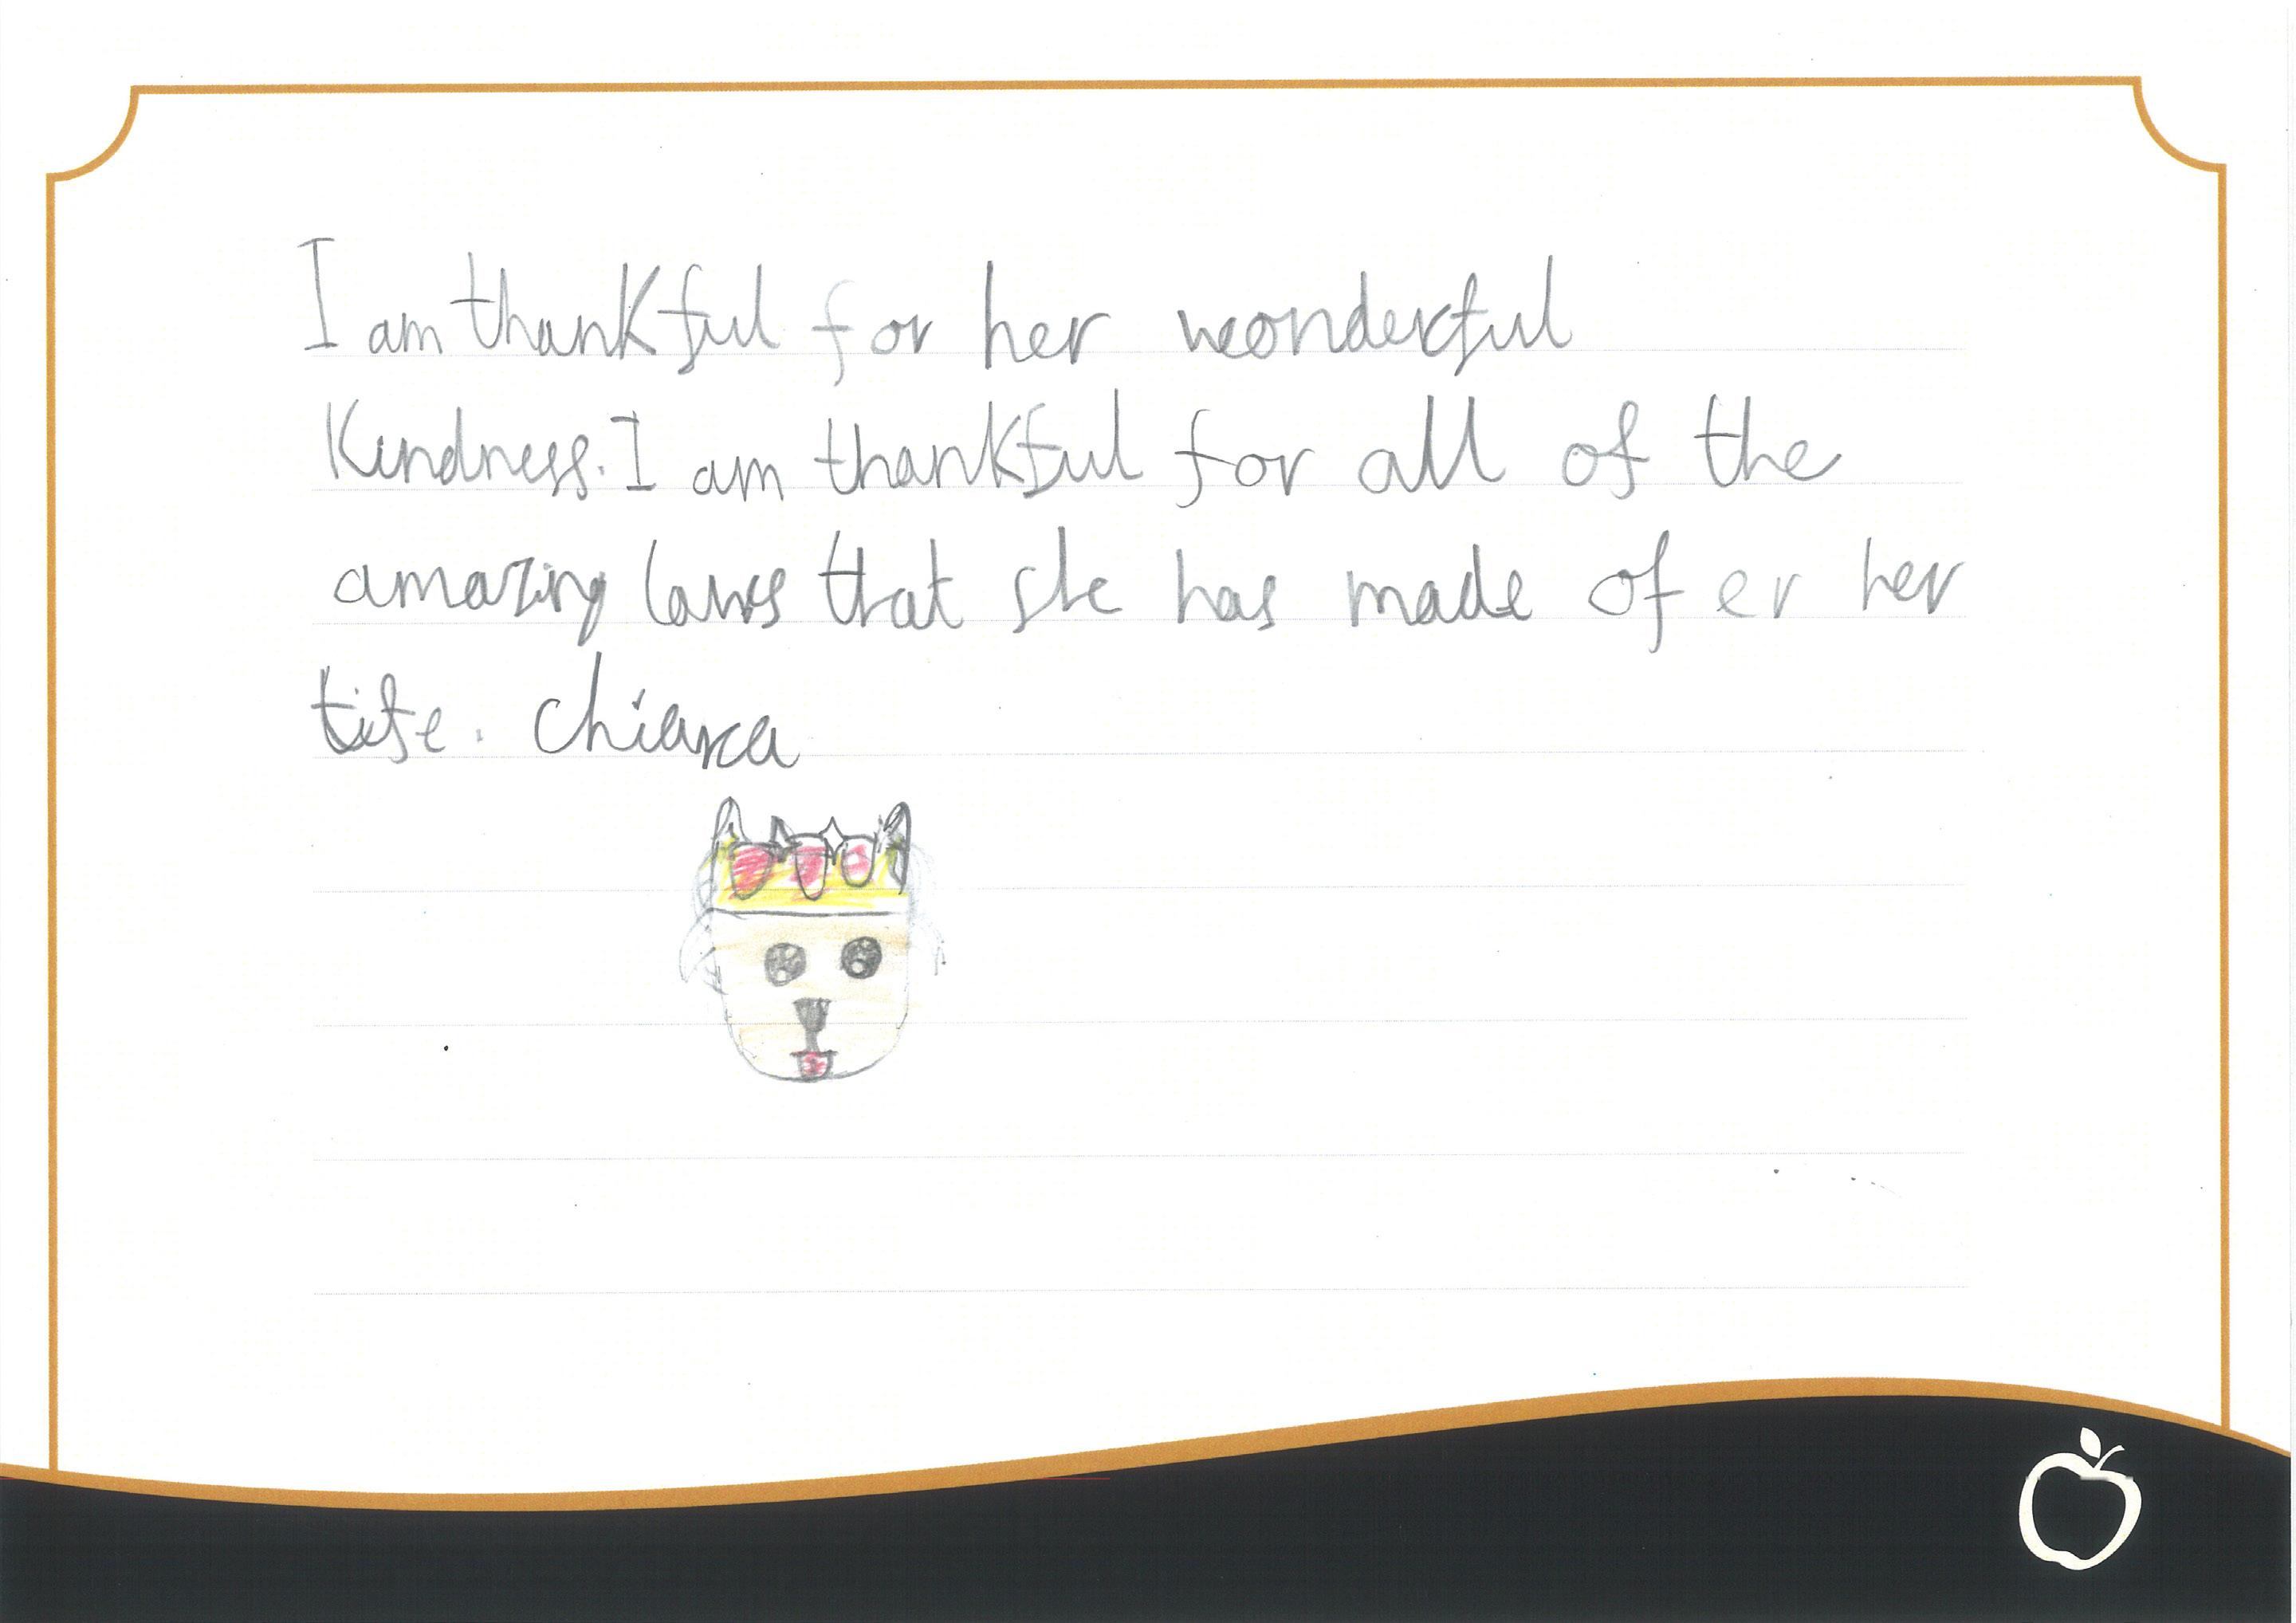 I am thankful for her wonderful
Kindness. I am thankful for all of the
amazing laws that she has made of er her
life. Chiara